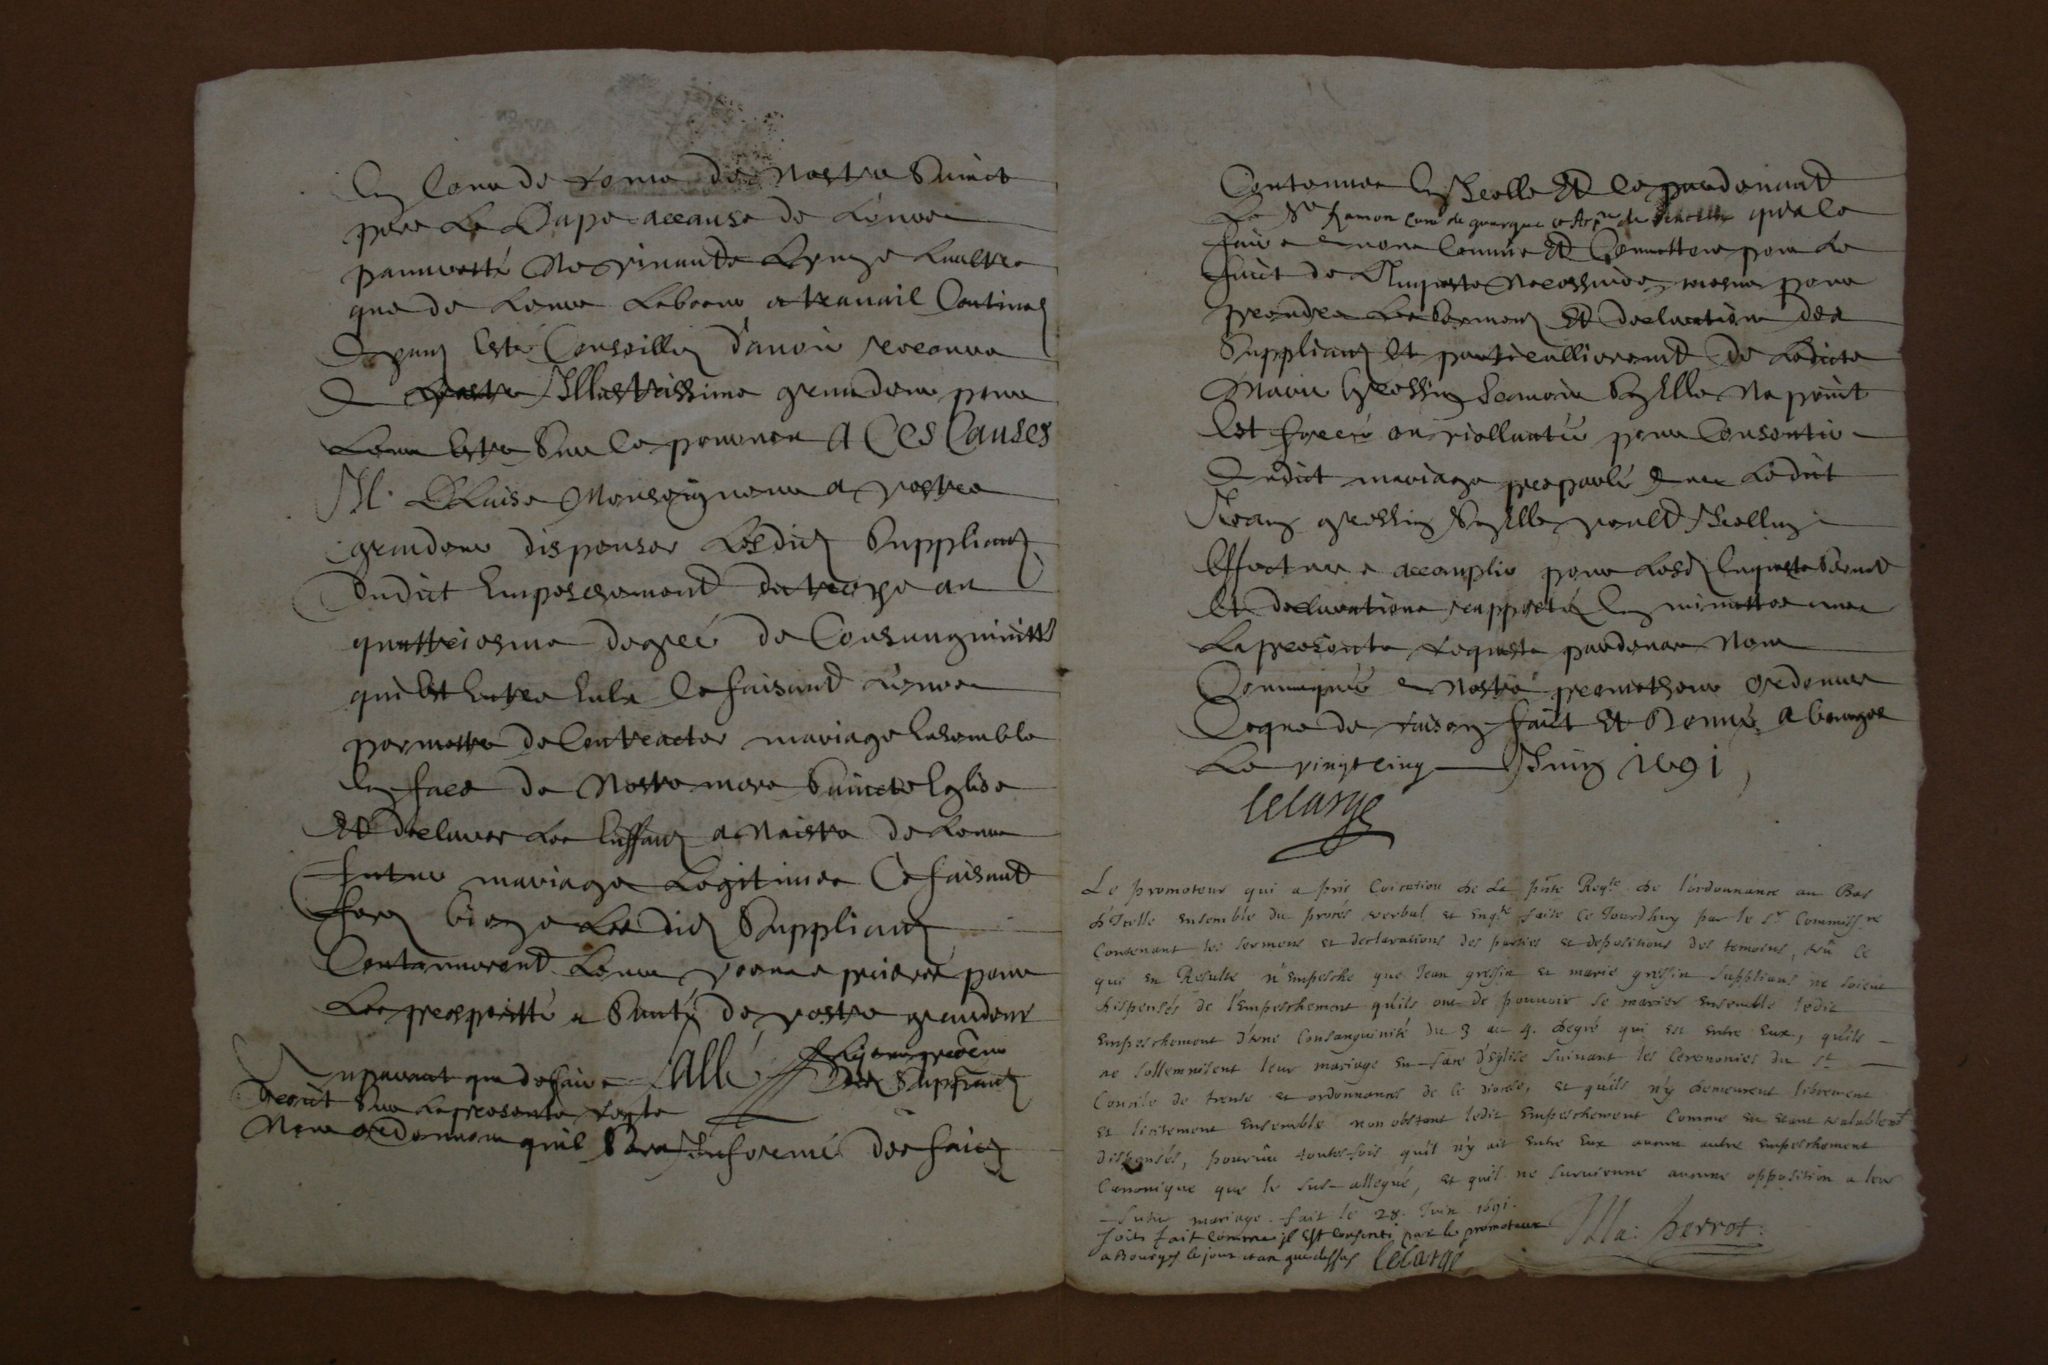 En Cour de rome de Nostre Sainct
pere Le Pape accause de Leurs
pauvretté Ne vivants Lun et Laultre
que de Leurs Labeurs et travail Continuel
Ils ont Esté Conseillez d'avoir recours
a Vostre Illustrissime grandeur pour
Leur estre Sur ce pourveu A CES CAUSES
Il Plaise Monseigneur a vostre
grandeur dispenser Lesdictz Supplians
dudict Empeschement du trois au
quattriesme degré de Consanguinitté
qui Est Entre Eulx Ce faisant Leurs
permettre de Contracter mariage Ensemble
En face de Nostre mere Saincte Eglise
Et declarer Les Enffans a Naistre de Leur
futur mariage Legitimes Ce faisant
ferez bien Lesdictz Supplians
Continueront Leurs voeux prieres pour
Les prosperitté et Santé de vostre grandeur
Auparavant que de faire Lallé
droict Sur La presente req.te des Supplians
Nous ordonnons quil Sera Informé des faictz
Contenues En Icelle Et ce pardevant
Le Sr Ramon Curé de que a ce
faire avons Commis Et Commettons pour Le
faict de L'Enqueste Necessaire mesme pour
prendre Le Serment Et declaration des
Supplians Et particullierement de Ladicte
Marie gressin Scavoir Sy Elle Na point
Esté forcée ou viollantée pour Consentir
dudict mariage proparlé avec Ledict
Jean gressin Sy Elle veult Icelluy
Effectuer et accomplir pour Lesd. Enqueste Serment
Et declarations rapportés Et mis mettre avec
La presente requeste pardevers Nous
Communiqués a Nostre promotheur ordonner
Ce que de raison faict Et Donné a bourges
Le vingt cinq Juin 1691
Lelarge
Le promoteur qui a pris Coication de La pnte Reqte de l'ordonnance au Bas
d'Icelle ensemble du procés verbal et Enqte faite Ce Jourdhuy par le Sr Commissre
Contenant les sermens et declarations des parties et depositions des temoins, vû Ce
qui en Resulte n'Empesche que Jean gressin et marie gressin Supplians ne soient
dispensés de l'Empeschement qu'ils ont de pouvoir se marier ensemble ledit
Empeschement d'Une Consanguinité du 3 au 4. degré qui est entre Eux, qu'ils
ne sollemnisent leur mariage en face d'Eglise suivant les Ceremonies du St
Concile de trente et ordonnances de Ce diocése, et qu'ils n'y demeurent librement
et licitement ensemble non obstant ledit Empeschement Comme en etant valablemt
dispensés, pourvû toutes-fois qu'il n'y ait entre Eux aucun autre Empeschement
Canonique que le sus-allegué, et qu'il ne survienne aucune opposition a leur
futur mariage. fait le 28. Juin 1691.
Soit fait comme il est consenti par le promoteur Perrot.
a Bourges le jour et an que dessus Lelarge